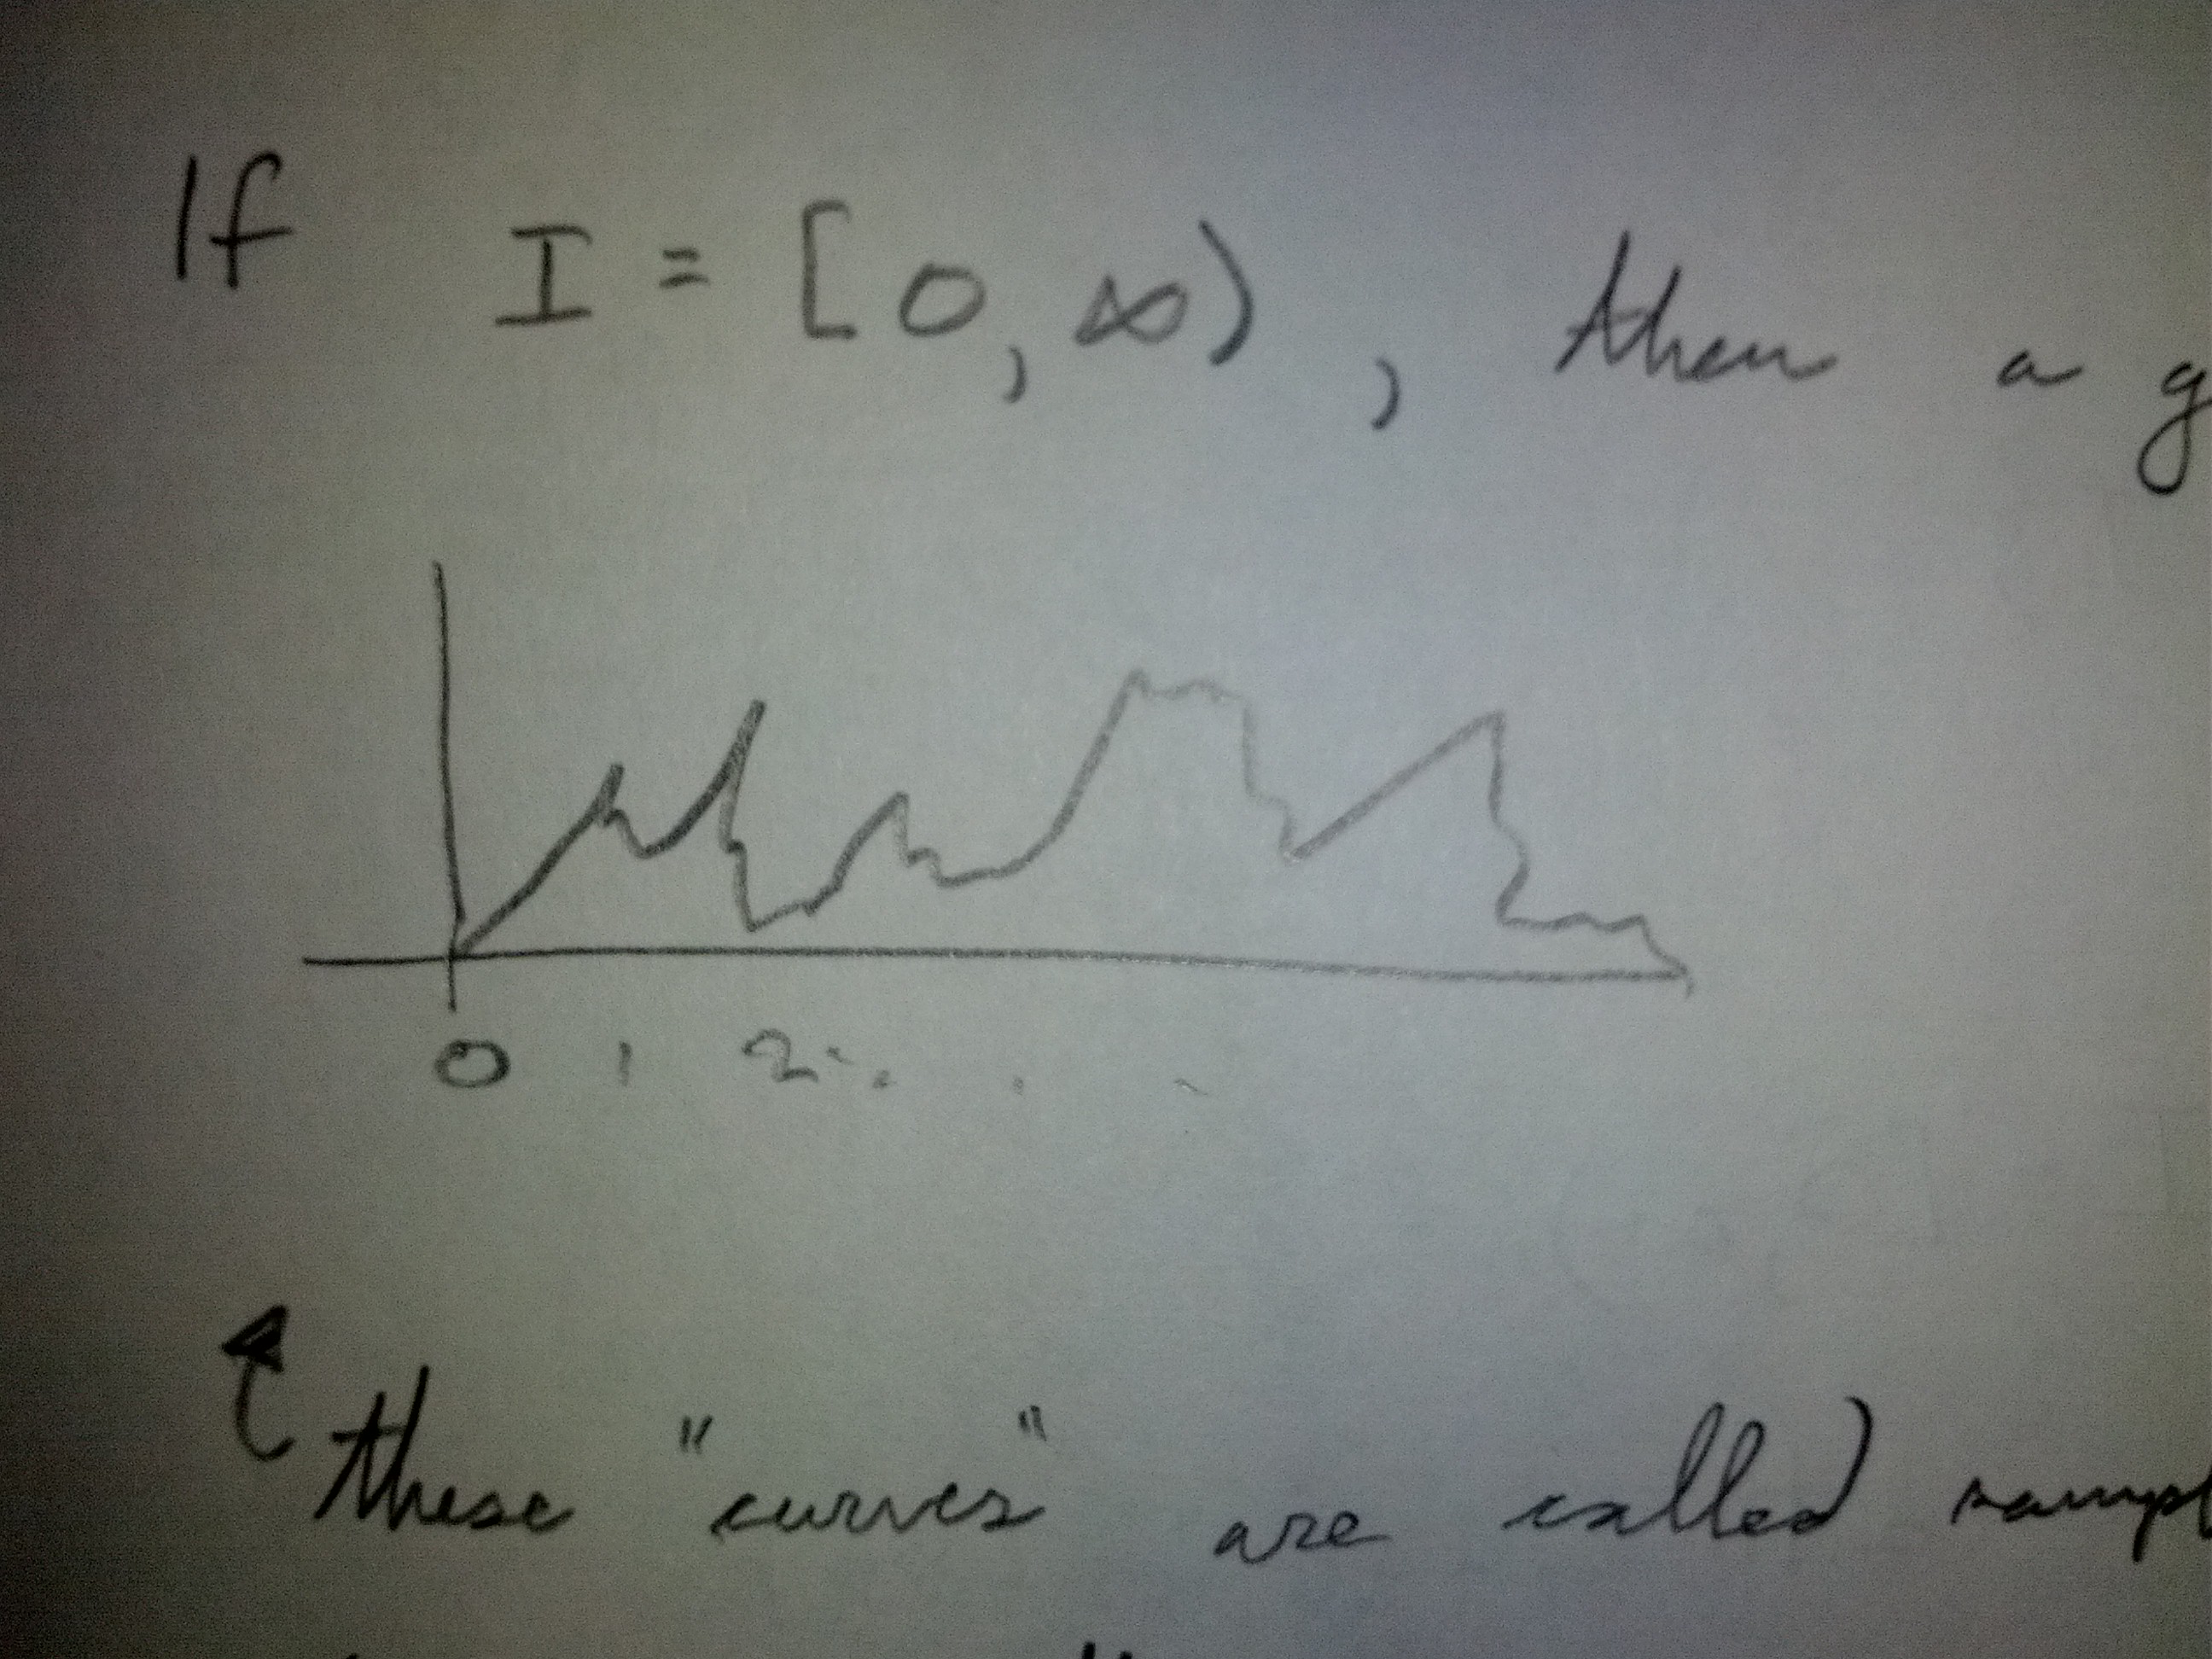 If I = [0, ∞), then a g
0 1 2 . . .
these "curves" are called sampl